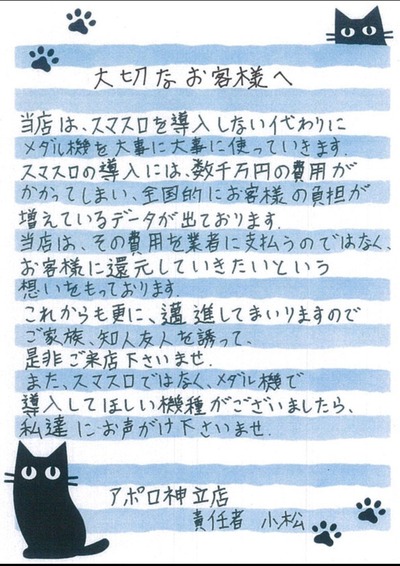 大切なお客様へ
当店は、スマスロを導入しない代わりに
メダル機を大事に大事に使っていきます。
スマスロの導入には、数千万円の費用が
かかってしまい、全国的にお客様の負担が
増えているデータが出ております。
当店は、その費用を業者に支払うのではなく、
お客様に還元していきたいという
想いをもっております。
これからも更に、邁進してまいりますので
ご家族、知人友人を誘って、
是非ご来店下さいませ。
また、スマスロではなく、メダル機で
導入してほしい機種がございましたら、
私達にお声がけ下さいませ。
アポロ神立店
責任者 小松